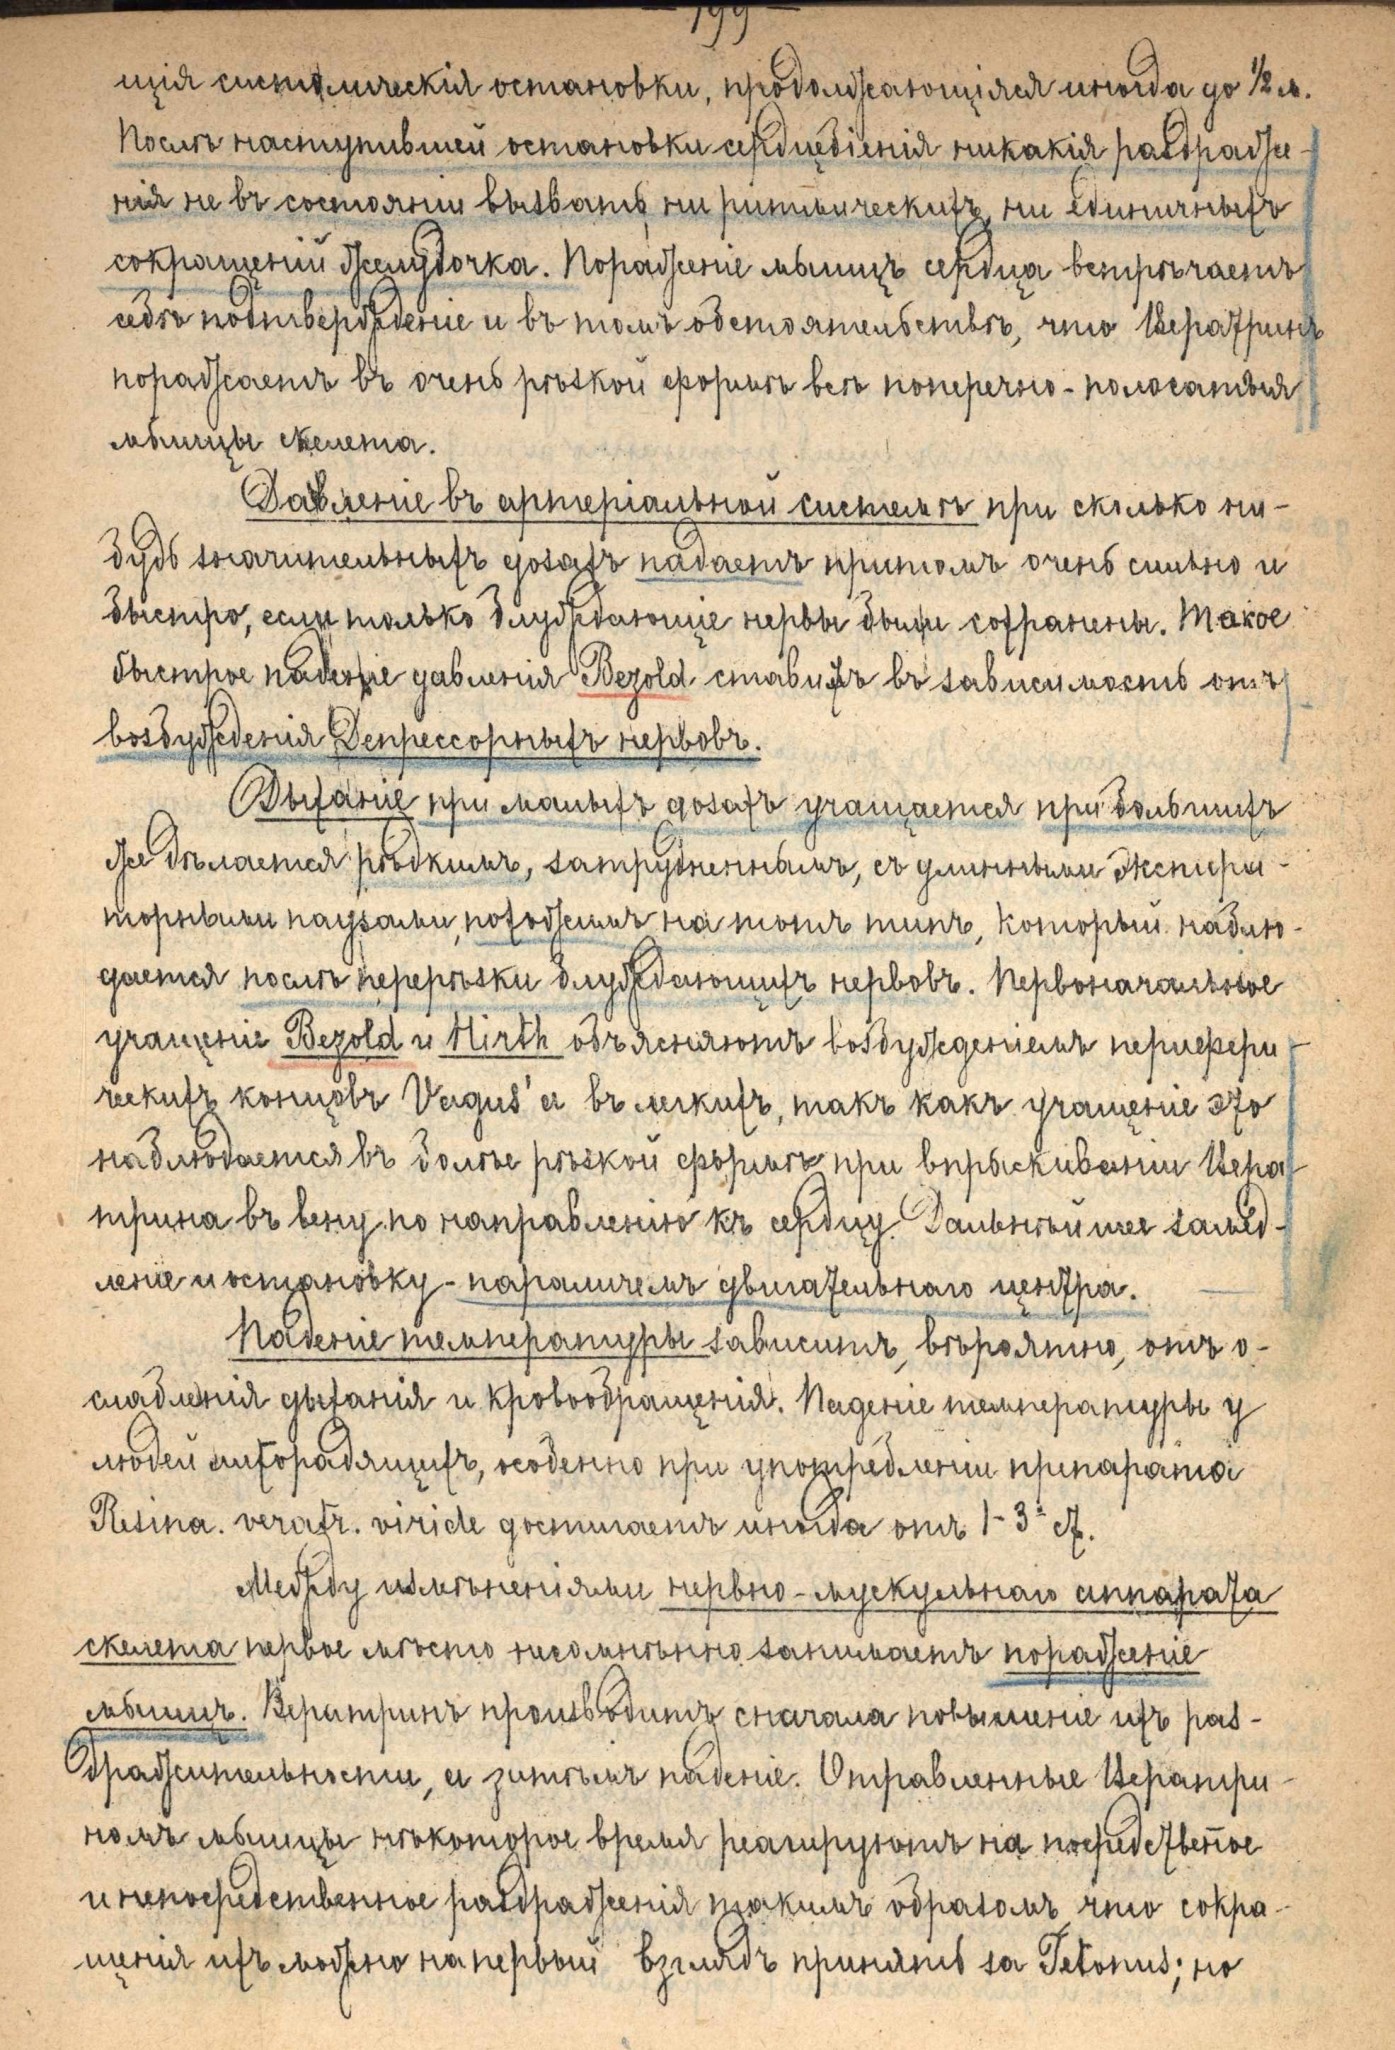 — 199 —
щія систолическія остановки, продолжающіяся иногда до 1/2 м.
Послѣ наступившей остановки сердцебіенія никакія раздраже-
нія не въ состояніи вызвать ни ритмическихъ, ни единичныхъ
сокращеній желудочка. Пораженіе мышцъ сердца встрѣчаетъ
себѣ подтвержденіе и въ томъ обстоятельствѣ, что Вератринъ
поражаетъ въ очень рѣзкой формѣ всѣ поперечно-полосатыя
мышцы скелета.
Давленіе въ артеріальной системѣ при сколько ни-
будь значительныхъ дозахъ падаетъ притомъ очень сильно и
быстро, если только блуждающіе нервы были сохранены. Такое
быстрое паденіе давленія Bezold ставитъ въ зависимость отъ
возбужденія Депрессорныхъ нервовъ.
Дыханіе при малыхъ дозахъ учащается при большихъ
же дѣлается рѣдкимъ, затрудненнымъ, съ длинными экспира-
торными паузами, похожимъ на тотъ типъ, который наблю-
дается послѣ перерѣзки блуждающихъ нервовъ. Первоначальное
учащеніе Bezold и Hirth объясняютъ возбужденіемъ перифери-
ческихъ концовъ Vagus'а въ легкихъ, такъ какъ учащеніе это
наблюдается въ болѣе рѣзкой формѣ при впрыскиваніи Вера-
трина въ вену по направленію къ сердцу. Дальнѣйшее замед-
леніе и остановку - параличемъ двигательнаго центра.
Паденіе температуры зависитъ, вѣроятно, отъ о-
слабленія дыханія и кровообращенія. Паденіе температуры у
людей лихорадящихъ, особенно при употребленіи препарата
Resina. veratr. viride достигаетъ иногда отъ 1-3° ст.
Между измѣненіями нервно-мускульнаго аппарата
скелета первое мѣсто несомнѣнно занимаетъ пораженіе
мышцъ. Вератринъ производитъ сначала повышеніе ихъ раз-
дражительности, а затѣмъ паденіе. Отравленные Вератри-
номъ мышцы нѣкоторое время реагируютъ на посредственое
и непосредственное раздраженія такимъ образомъ что сокра-
щенія ихъ можно на первый взглядъ принять за Tetanus; но